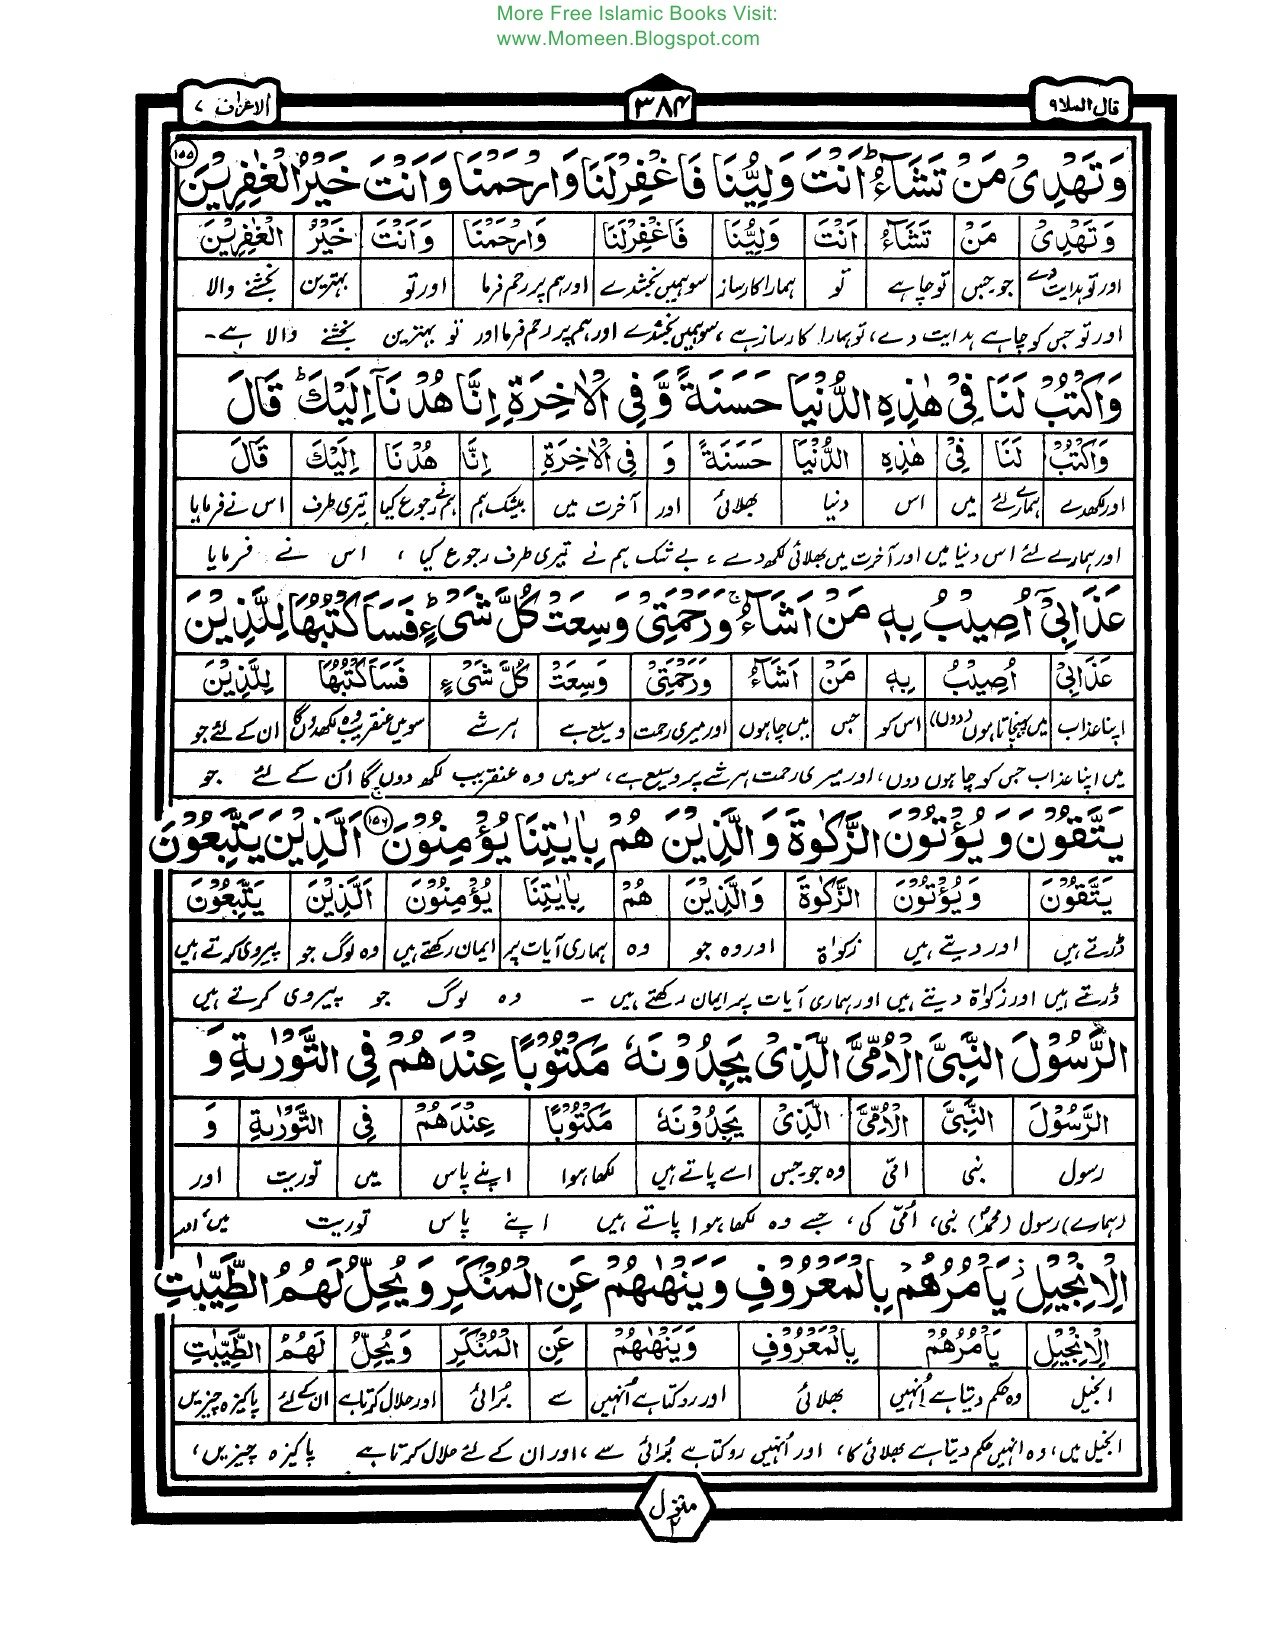 More Free Islamic Books Visit:
www.Momeen.Blogspot.com
قال الملا۹
۳۸۴
الاعراف ۷
وَتَهْدِیْ مَنْ تَشَآءُ ؕ اَنْتَ وَلِیُّنَا فَاغْفِرْلَنَا وَارْحَمْنَا وَاَنْتَ خَیْرُ الْغٰفِرِیْنَ ۱۵۵
وَتَهْدِیْ مَنْ تَشَآءُ اَنْتَ وَلِیُّنَا فَاغْفِرْلَنَا وَارْحَمْنَا وَاَنْتَ خَیْرُ الْغٰفِرِیْنَ
اور تو ہدایت دے جو۔جس تو چاہے تو ہمارا کارساز سو ہمیں بخشدے اور ہم پر رحم فرما اور تو بہترین بخشنے والا
اور تو جس کو چاہے ہدایت دے، تو ہمارا کارساز ہے، سو ہمیں بخشدے اور ہم پر رحم فرما اور تو بہترین بخشنے والا ہے۔
وَاکْتُبْ لَنَا فِیْ هٰذِهِ الدُّنْیَا حَسَنَةً وَّ فِی الْاٰخِرَةِ اِنَّا هُدْنَاۤ اِلَیْكَ ؕ قَالَ
وَاکْتُبْ لَنَا فِیْ هٰذِهِ الدُّنْیَا حَسَنَةً وَ فِی الْاٰخِرَةِ اِنَّا هُدْنَا اِلَیْكَ قَالَ
اور لکھدے ہمارے لئے میں اس دنیا بھلائی اور آخرت میں بیشک ہم ہم نے رجوع کیا تیری طرف اس نے فرمایا
اور ہمارے لئے اس دنیا میں اور آخرت میں بھلائی لکھ دے، بے شک ہم نے تیری طرف رجوع کیا، اس نے فرمایا
عَذَابِیْۤ اُصِیْبُ بِهٖ مَنْ اَشَآءُ ۚ وَرَحْمَتِیْ وَسِعَتْ کُلَّ شَیْءٍ ؕ فَسَاَکْتُبُهَا لِلَّذِیْنَ
عَذَابِیْ اُصِیْبُ بِهٖ مَنْ اَشَآءُ وَرَحْمَتِیْ وَسِعَتْ کُلَّ شَیْءٍ فَسَاَکْتُبُهَا لِلَّذِیْنَ
اپنا عذاب میں پہنچاتا ہوں (دوں) اس کو جس میں چاہوں اور میری رحمت وسیع ہے ہر شے سو میں عنقریب وہ لکھدوں گا ان کے لئے جو
میں اپنا عذاب جس کو چاہوں دوں، اور میری رحمت ہر شے پر وسیع ہے، سو میں وہ عنقریب لکھ دوں گا اُن کے لئے جو
یَتَّقُوْنَ وَیُؤْتُوْنَ الزَّکٰوةَ وَالَّذِیْنَ هُمْ بِاٰیٰتِنَا یُؤْمِنُوْنَ ۱۵۶ اَلَّذِیْنَ یَتَّبِعُوْنَ
یَتَّقُوْنَ وَیُؤْتُوْنَ الزَّکٰوةَ وَالَّذِیْنَ هُمْ بِاٰیٰتِنَا یُؤْمِنُوْنَ اَلَّذِیْنَ یَتَّبِعُوْنَ
ڈرتے ہیں اور دیتے ہیں زکوٰۃ اور وہ جو وہ ہماری آیات پر ایمان رکھتے ہیں وہ لوگ جو پیروی کرتے ہیں
ڈرتے ہیں اور زکوٰۃ دیتے ہیں اور ہماری آیات پر ایمان رکھتے ہیں ۔ وہ لوگ جو پیروی کرتے ہیں
الرَّسُوْلَ النَّبِیَّ الْاُمِّیَّ الَّذِیْ یَجِدُوْنَهٗ مَکْتُوْبًا عِنْدَهُمْ فِی التَّوْرٰىةِ وَ
الرَّسُوْلَ النَّبِیَّ الْاُمِّیَّ الَّذِیْ یَجِدُوْنَهٗ مَکْتُوْبًا عِنْدَهُمْ فِی التَّوْرٰىةِ وَ
رسول نبی امّی وہ جو۔جس اسے پاتے ہیں لکھا ہوا اپنے پاس میں توریت اور
(ہمارے) رسول (محمدؐ) نبی، اُمّی کی، جسے وہ لکھا ہوا پاتے ہیں اپنے پاس توریت میں، اور
الْاِنْجِیْلِ ؗ یَاْمُرُهُمْ بِالْمَعْرُوْفِ وَیَنْهٰىهُمْ عَنِ الْمُنْکَرِ وَیُحِلُّ لَهُمُ الطَّیِّبٰتِ
الْاِنْجِیْلِ یَاْمُرُهُمْ بِالْمَعْرُوْفِ وَیَنْهٰىهُمْ عَنِ الْمُنْکَرِ وَیُحِلُّ لَهُمُ الطَّیِّبٰتِ
انجیل وہ حکم دیتا ہے اُنہیں بھلائی اور روکتا ہے اُنہیں سے بُرائی اور حلال کرتا ہے ان کے لئے پاکیزہ چیزیں
انجیل میں، وہ انہیں حکم دیتا ہے بھلائی کا، اور اُنہیں روکتا ہے بُرائی سے، اور ان کے لئے حلال کرتا ہے پاکیزہ چیزیں،
منزل ۲